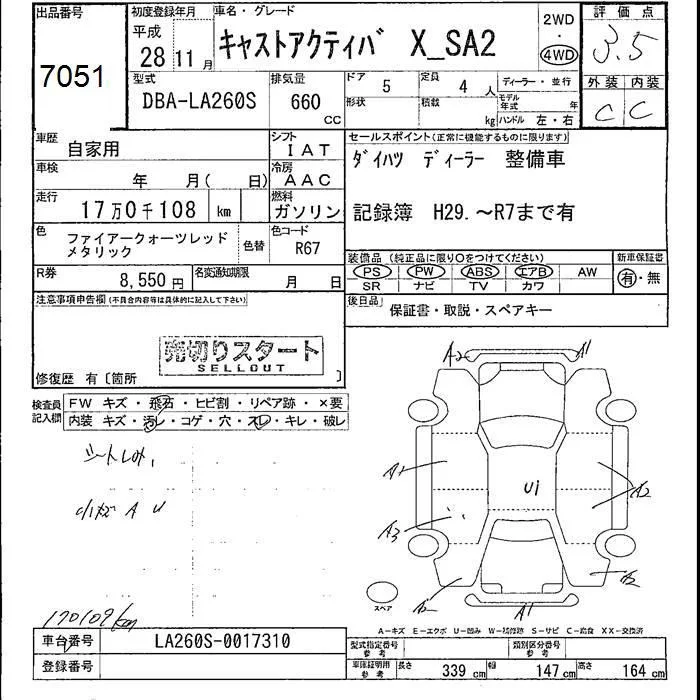 出品番号
7051
初度登録年月
平成
28 11 月
車名・グレード
キャストアクティバ X_SA2
2WD
・
4WD
評価点
3.5
型式
DBA-LA260S
排気量
660
CC
ドア
5
定員
4 人
ディーラー・並行
形状
積載
kg
モデル年式 年
ハンドル 左・右
外装 内装
C C
車歴
自家用
シフト
IAT
車検
年 月( 日)
冷房
AAC
走行
17万0千108 km
燃料
ガソリン
色
ファイアークォーツレッド
メタリック
色替
色コード
R67
R券
8,550 円
名変通知期限
月 日
セールスポイント(正常に機能するものに限ります)
ダイハツ ディーラー 整備車
記録簿 H29.~R7まで有
装備品(純正品に限り○をつけてください)
PS PW ABS エアB AW
SR ナビ TV カワ
新車保証書
有・無
後日品
保証書・取説・スペアキー
注意事項申告欄(不具合内容等は具体的に記入して下さい)
売切りスタート
SELLOUT
修復歴 有〔箇所 〕
検査員
記入欄
FW キズ・飛石・ヒビ割・リペア跡・×要
内装 キズ・汚レ・コゲ・穴・スレ・キレ・破レ
シート
小キズ A U
170109km
A2 A1
A1
U1
A2
A3
A2
A1
スペア
A-キズ E-エクボ U-凹み W-補修跡 S-サビ C-腐食 XX-交換済
車台番号
LA260S-0017310
登録番号
型式指定番号
参考
類別区分番号
参考
車庫証明用
参考
長さ 339 cm 幅 147 cm 高さ 164 cm